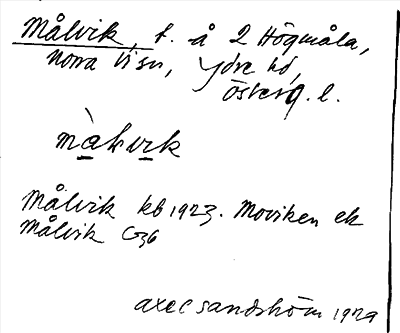 Målvik, t. å 2 Högmåla,
Norra Vi sn, Ydre hd,
Österg. l.
màlvik
Målvik kb 1923. Moviken ek
Målvik G36
Axel Sandström 1929